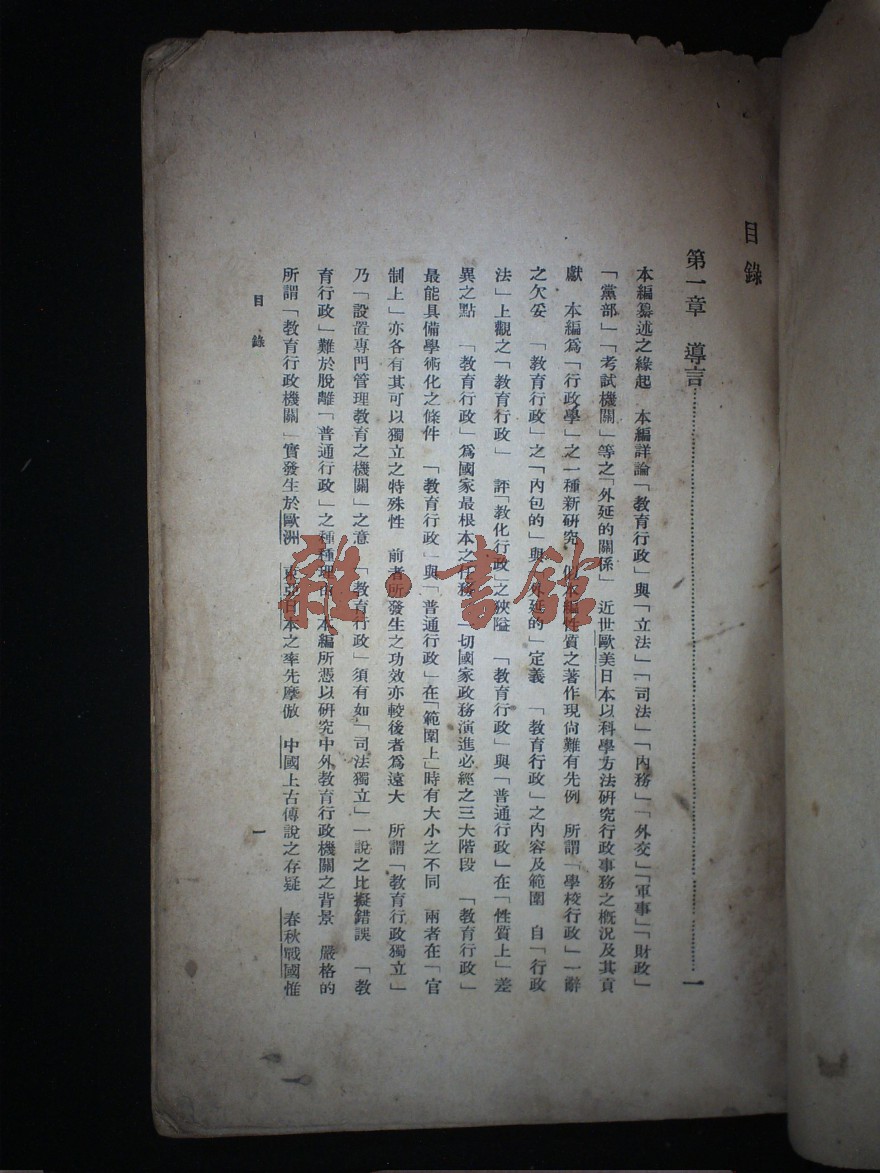 目錄
第一章　導言……………………一
本編纂述之緣起　本編詳論「教育行政」與「立法」「司法」「內務」「外交」「軍事」「財政」
「黨部」「考試機關」等之「外延的關係」　近世歐美日本以科學方法研究行政事務之概況及其貢
獻　本編爲「行政學」之一種新研究　似本編性質之著作現尙難有先例　所謂「學校行政」一辭
之欠妥　「教育行政」之「內包的」與「外延的」定義　「教育行政」之內容及範圍　自「行政
法」上觀之「教育行政」　評「教化行政」之狹隘　「教育行政」與「普通行政」在「性質上」差
異之點　「教育行政」爲國家最根本之任務　一切國家政務演進必經之三大階段　「教育行政」
最能具備學術化之條件　「教育行政」與「普通行政」在「範圍上」時有大小之不同　兩者在「官
制上」亦各有其可以獨立之特殊性　前者所發生之功效亦較後者爲遠大　所謂「教育行政獨立」
乃「設置專門管理教育之機關」之意　「教育行政」須有如「司法獨立」一說之比擬錯誤　「教
育行政」難於脫離「普通行政」之種種理由　本編所憑以研究中外教育行政機關之背景　嚴格的
所謂「教育行政機關」實發生於歐洲　東亞日本之率先摩倣　中國上古傳說之存疑　春秋戰國惟
目錄
一
雜·書館